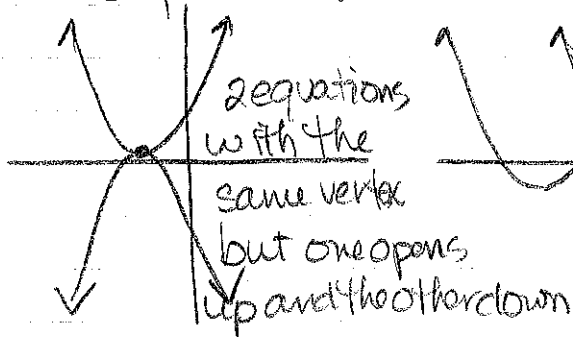 2equations
with the
same vertex
but one opens
up and the other down